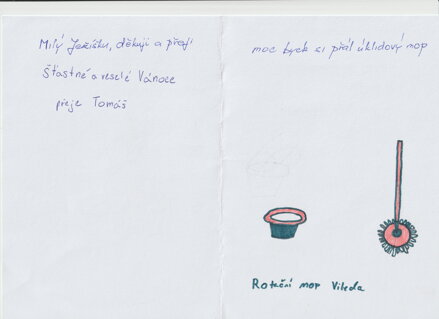 Milý Ježíšku, děkuji a přeji
Šťastné a veselé Vánoce
přeje Tomáš
moc bych si přál úklidový mop
Rotační mop Vileda